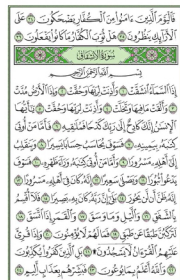 فَٱلْيَوْمَ ٱلَّذِينَ ءَامَنُوا۟ مِنَ ٱلْكُفَّارِ يَضْحَكُونَ ٣٤ عَلَى
ٱلْأَرَآئِكِ يَنظُرُونَ ٣٥ هَلْ ثُوِّبَ ٱلْكُفَّارُ مَا كَانُوا۟ يَفْعَلُونَ ٣٦
سُورَةُ ٱلِانشِقَاقِ
بِسْمِ ٱللَّهِ ٱلرَّحْمَٰنِ ٱلرَّحِيمِ
إِذَا ٱلسَّمَآءُ ٱنشَقَّتْ ١ وَأَذِنَتْ لِرَبِّهَا وَحُقَّتْ ٢ وَإِذَا ٱلْأَرْضُ مُدَّتْ
٣ وَأَلْقَتْ مَا فِيهَا وَتَخَلَّتْ ٤ وَأَذِنَتْ لِرَبِّهَا وَحُقَّتْ ٥ يَٰٓأَيُّهَا
ٱلْإِنسَٰنُ إِنَّكَ كَادِحٌ إِلَىٰ رَبِّكَ كَدْحًا فَمُلَٰقِيهِ ٦ فَأَمَّا مَنْ أُوتِىَ
كِتَٰبَهُۥ بِيَمِينِهِۦ ٧ فَسَوْفَ يُحَاسَبُ حِسَابًا يَسِيرًا ٨ وَيَنقَلِبُ
إِلَىٰٓ أَهْلِهِۦ مَسْرُورًا ٩ وَأَمَّا مَنْ أُوتِىَ كِتَٰبَهُۥ وَرَآءَ ظَهْرِهِۦ ١٠ فَسَوْفَ
يَدْعُوا۟ ثُبُورًا ١١ وَيَصْلَىٰ سَعِيرًا ١٢ إِنَّهُۥ كَانَ فِىٓ أَهْلِهِۦ مَسْرُورًا ١٣
إِنَّهُۥ ظَنَّ أَن لَّن يَحُورَ ١٤ بَلَىٰٓ إِنَّ رَبَّهُۥ كَانَ بِهِۦ بَصِيرًا ١٥ فَلَآ أُقْسِمُ
بِٱلشَّفَقِ ١٦ وَٱلَّيْلِ وَمَا وَسَقَ ١٧ وَٱلْقَمَرِ إِذَا ٱتَّسَقَ ١٨
لَتَرْكَبُنَّ طَبَقًا عَن طَبَقٍ ١٩ فَمَا لَهُمْ لَا يُؤْمِنُونَ ٢٠ وَإِذَا قُرِئَ
عَلَيْهِمُ ٱلْقُرْءَانُ لَا يَسْجُدُونَ ۩ ٢١ بَلِ ٱلَّذِينَ كَفَرُوا۟ يُكَذِّبُونَ
٢٢ وَٱللَّهُ أَعْلَمُ بِمَا يُوعُونَ ٢٣ فَبَشِّرْهُم بِعَذَابٍ أَلِيمٍ ٢٤